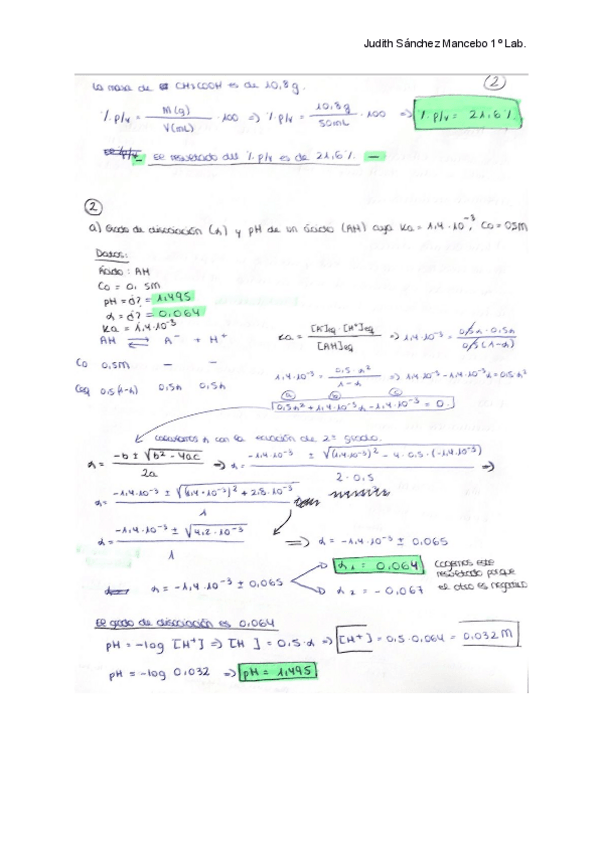 Judith Sánchez Mancebo 1º Lab.
La masa de CH3COOH es de 10,8g.
②
%p/v = M(g)/V(mL) · 100 => %p/v = 10,8g/50mL · 100 => %p/v = 21,6%
– El resultado del %p/v es de 21,6% –
②
a) Grado de disociación (α) y pH de un ácido (AH) cuya Ka = 1,4·10⁻³, Co = 0,5M
Datos:
Ácido: AH
Co = 0,5M
pH = ¿? = 1,495
α = ¿? = 0,064
Ka = 1,4·10⁻³
AH ⇌ A⁻ + H⁺
Co 0,5M – –
Ceq 0,5(1-α) 0,5α 0,5α
Ka = [A⁻]eq · [H⁺]eq / [AH]eq => 1,4·10⁻³ = 0,5α · 0,5α / 0,5(1-α)
1,4·10⁻³ = 0,5·α² / 1-α => 1,4·10⁻³ - 1,4·10⁻³α = 0,5·α²
ⓐ ⓑ ⓒ
0,5α² + 1,4·10⁻³α - 1,4·10⁻³ = 0
Calculamos α con la ecuación de 2º grado.
α = -b ± √b² - 4ac / 2a => α = -1,4·10⁻³ ± √(1,4·10⁻³)² - 4·0,5·(-1,4·10⁻³) / 2·0,5 =>
α = -1,4·10⁻³ ± √(1,4·10⁻³)² + 2,8·10⁻³ / 1
α = -1,4·10⁻³ ± √4,2·10⁻³ / 1 => α = -1,4·10⁻³ ± 0,065
α = -1,4·10⁻³ ± 0,065
α₁ = 0,064
α₂ = -0,067
cogemos este
resultado porque
el otro es negativo
El grado de disociación es 0,064
pH = -log [H⁺] => [H ] = 0,5·α => [H⁺] = 0,5·0,064 = 0,032M
pH = -log 0,032 => pH = 1,495